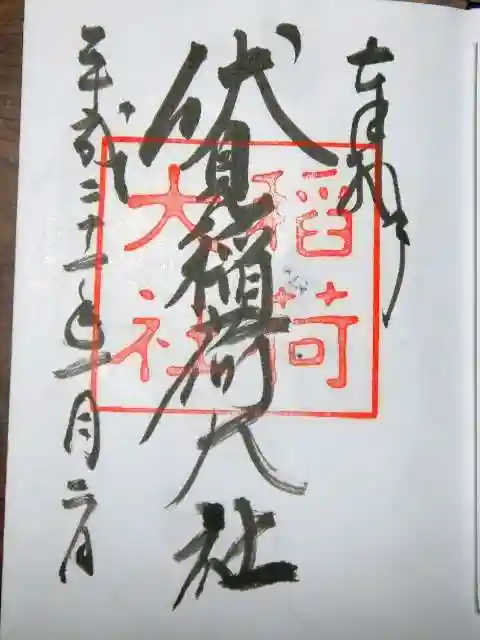 奉拝
伏見稲荷大社
平成二十一年一月二日
稲荷
大社